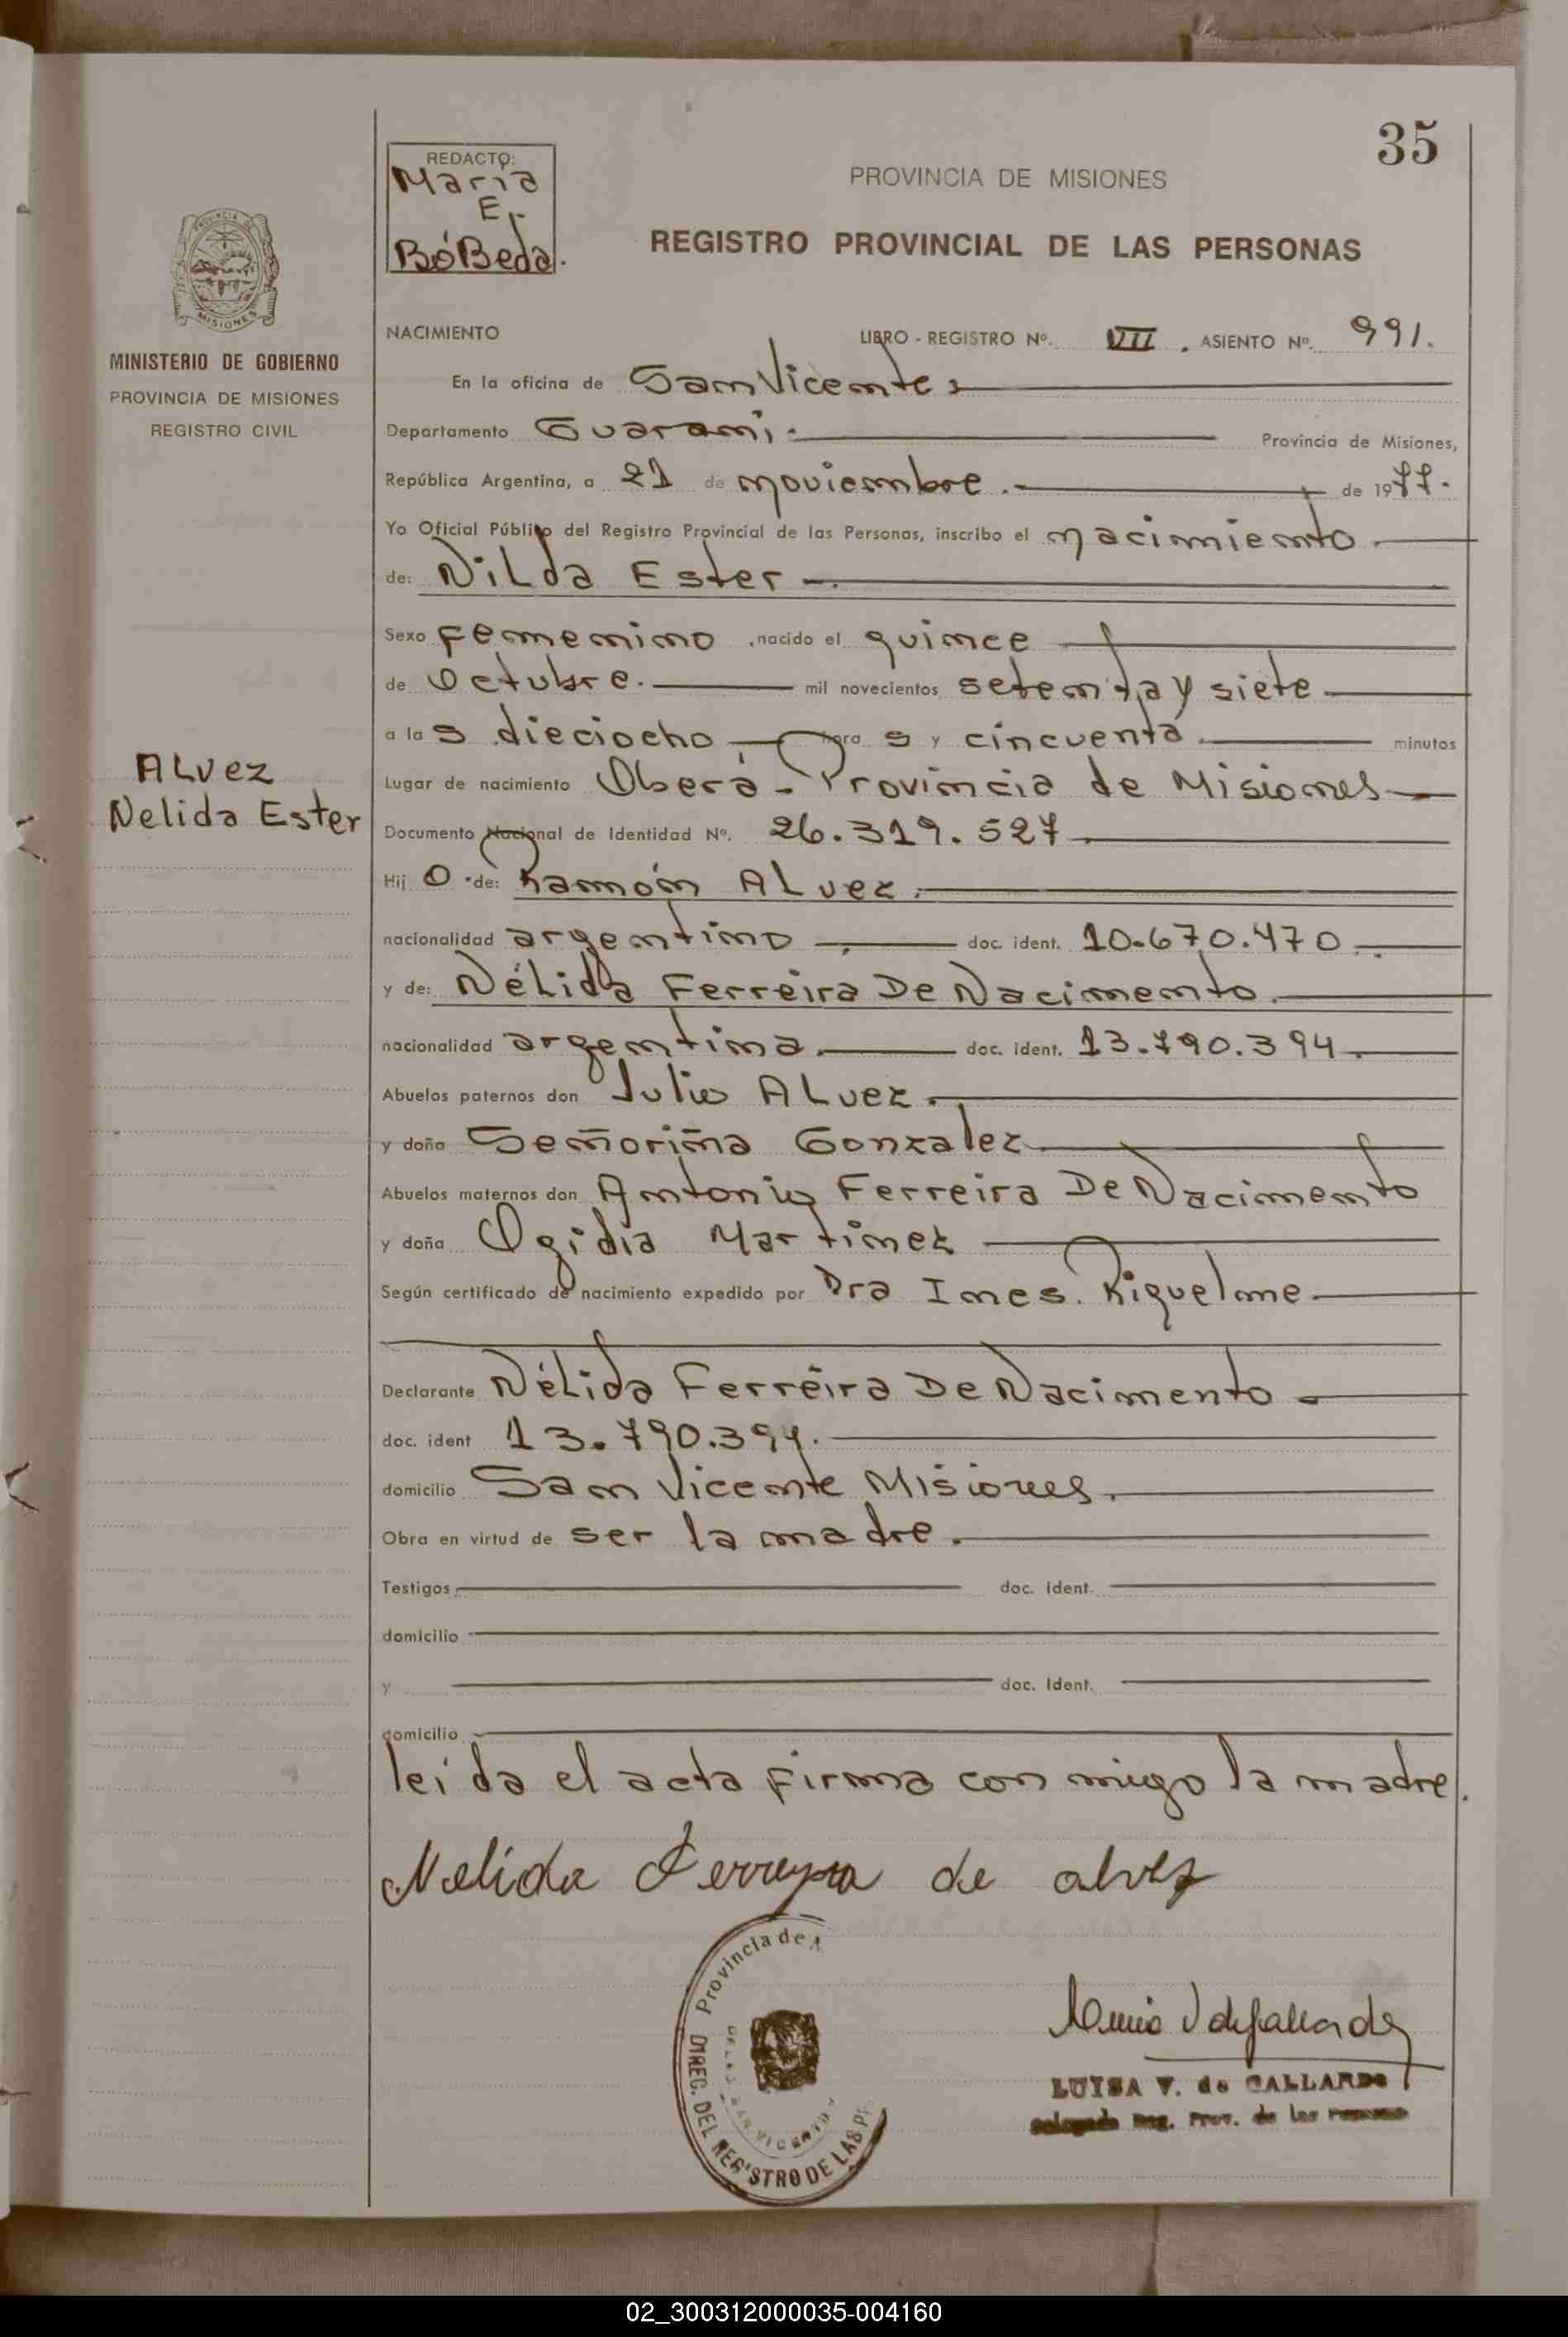 35
REDACTÓ:
Maria
E.
BóBeda.
PROVINCIA DE MISIONES
REGISTRO PROVINCIAL DE LAS PERSONAS
MISIONES
MINISTERIO DE GOBIERNO
PROVINCIA DE MISIONES
REGISTRO CIVIL
NACIMIENTO LIBRO - REGISTRO Nº. VII. ASIENTO Nº. 991.
En la oficina de San Vicente
Departamento Guarani. Provincia de Misiones,
República Argentina, a 21 de noviembre. de 1977.
Yo Oficial Público del Registro Provincial de las Personas, inscribo el nacimiento
de: Nilda Ester
Sexo femenino, nacido el quince
de Octubre. mil novecientos setenta y siete
a las dieciocho horas y cincuenta. minutos
Alvez
Nelida Ester
Lugar de nacimiento Oberá - Provincia de Misiones
Documento Nacional de Identidad Nº. 26.319.527
Hijo de: Ramón Alvez.
nacionalidad argentino doc. ident. 10.670.470
y de: Nélida Ferreira De Nacimento.
nacionalidad argentina. doc. ident. 13.790.394.
Abuelos paternos don Julio Alvez.
y doña Señoriña Gonzalez
Abuelos maternos don Antonio Ferreira De Nacimento
y doña Ogidia Martinez
Según certificado de nacimiento expedido por Dra Ines. Riquelme
Declarante Nélida Ferreira De Nacimento
doc. ident 13.790.394.
domicilio San Vicente Misiones.
Obra en virtud de ser la madre.
Testigos doc. ident.
domicilio
y doc. Ident.
domicilio
leída el acta firma con migo la madre.
Nelida Ferreyra de alvez
Provincia de
DIREC. DEL REGISTRO DE LAS P
LUISA V. de GALLARDO
Delegada Reg. Prov. de las Personas
02_300312000035-004160